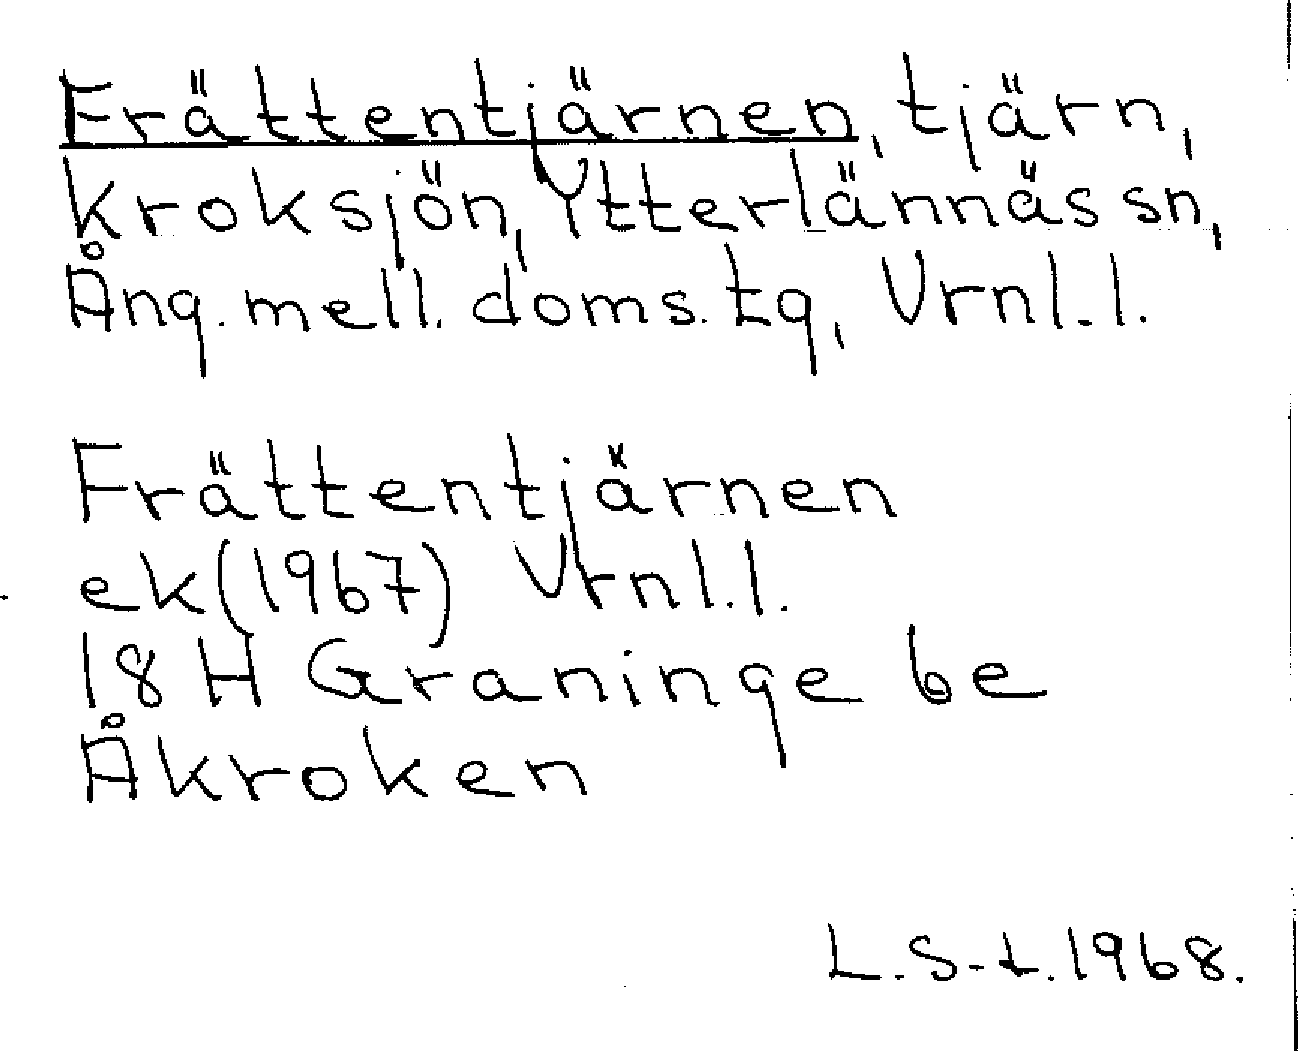 Frättentjärnen, tjärn,
kroksjön, Ytterlännäs sn,
Ång. mell. doms. tg, Vrnl.l.
Frättentjärnen
ek(1967) Vrnl.l.
18 H Graninge 6e
Åkroken
L.S-t.1968.